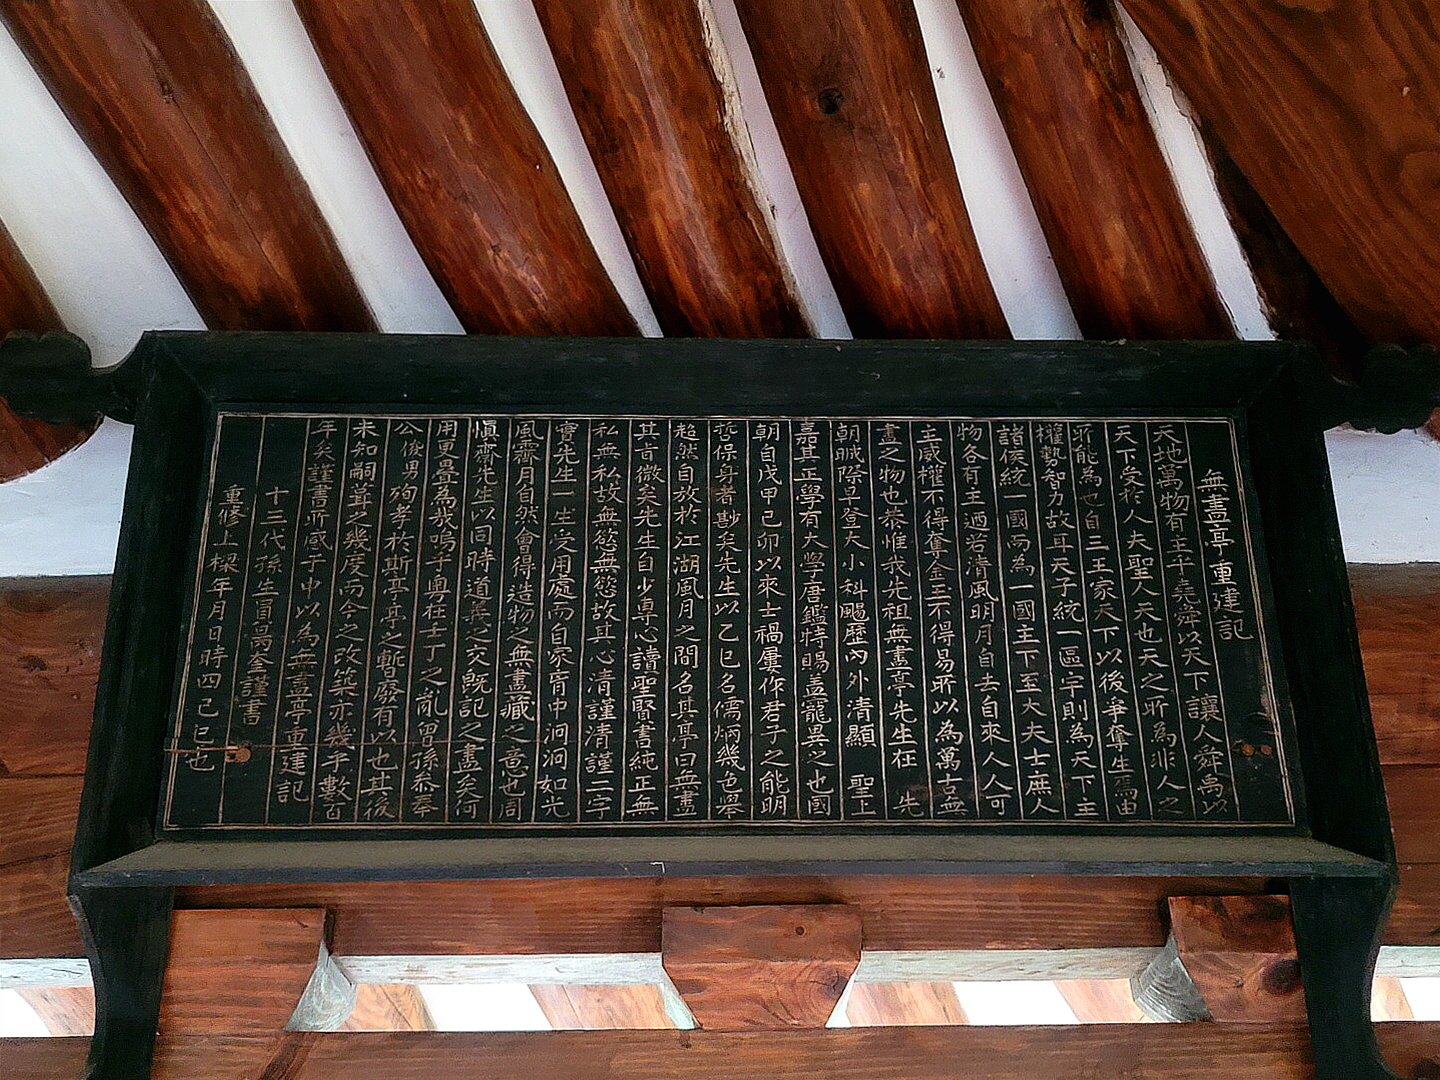 無盡亭重建記
天地萬物有主乎堯舜以天下讓人舜禹以
天下受於人夫聖人天也天之所為非人之
所能為也自三王家天下以後爭奪生焉由
權勢智力故耳天子統一區宇則為天下主
諸侯統一國而為一國主下至大夫士庶人
物各有主迺若清風明月自去自來人人可
主威權不得奪金玉不得易所以為萬古無
盡之物也恭惟我先祖無盡亭先生在 先
朝 際早登大小科颺歷內外清顯 聖上
嘉其正學有大學唐鑑特賜盖寵異之也國
朝自戊甲己卯以來士禍屢作君子之能明
哲保身者尠矣先生以乙巳名儒炳幾色舉
超然自放於江湖風月之間名其亭曰無盡
其旨微矣先生自少專心讀聖賢書純正無
私無私故無慾無慾故其心清謹清謹二字
實先生一生受用處而自家胷中泂泂如光
風霽月自然會得造物之無盡藏之意也周
愼齋先生以同時道義之交旣記之盡矣何
用更疊為哉嗚乎粤在壬丁之亂曾孫 奉
公俊男殉孝於斯亭亭之暫廢有以也其後
未知嗣葺之幾度而今之改築亦幾乎數百
年矣謹書所感于中以為無盡亭重建記
十三代孫生員昺奎謹書
重修上樑年月日時四己巳也